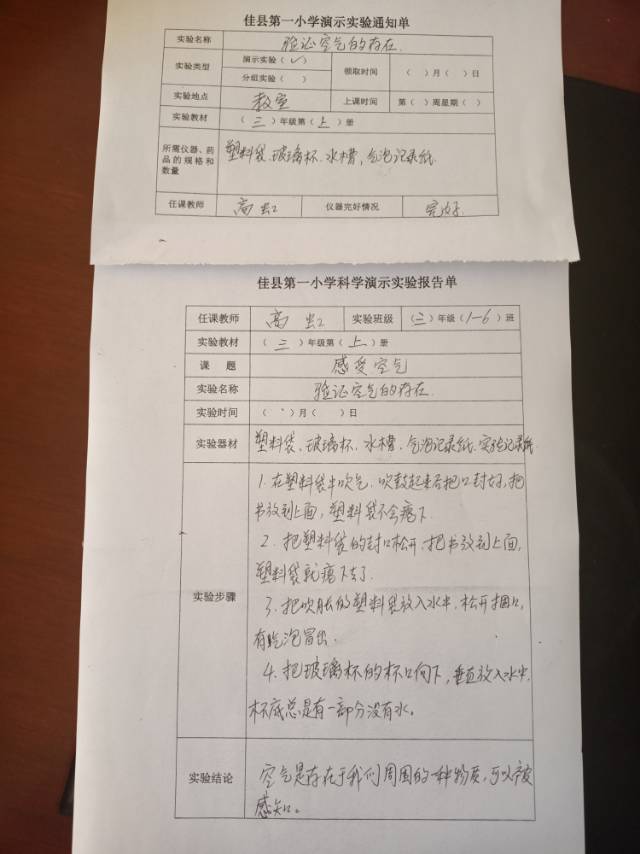 佳县第一小学演示实验通知单
实验名称 验证空气的存在.
实验类型 演示实验（✓） 领取时间 （ ）月（ ）日
分组实验（ ）
实验地点 教室 上课时间 第（ ）周星期（ ）
实验教材 （三）年级第（上）册
所需仪器、药 塑料袋、玻璃杯、水槽、气泡记录纸.
品的规格和
数量
任课教师 高虹 仪器完好情况 完好.
佳县第一小学科学演示实验报告单
任课教师 高虹 实验班级 （三）年级（1-6）班
实验教材 （三）年级第（上）册
课 题 感受空气
实验名称 验证空气的存在.
实验时间 （ ）月（ ）日
实验器材 塑料袋、玻璃杯、水槽、气泡记录纸.实验记录纸.
1.在塑料袋中吹气.吹鼓起来后把口封好,把
书放到上面,塑料袋不会瘪下.
2.把塑料袋的封口松开.把书放到上面,
塑料袋就瘪下去了.
实验步骤
3.把吹胀的塑料袋放入水中.松开捆口,
有气泡冒出.
4.把玻璃杯的杯口向下,垂直放入水中.
杯底总是有一部分没有水。
实验结论 空气是存在于我们周围的一种物质,可以被
感知。